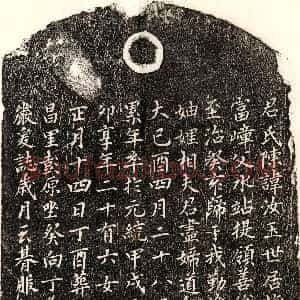 君氏諱汝玉世居
富嶂父永站提領善
至治癸亥歸于我勤
妯娌相夫君盡婦道
大己酉四月二十八
累年卒於元統甲戌
卯享年二十有六女
正月十四日丁酉葬
昌里彭原坐癸向丁
歲爰誌歲月云朞服